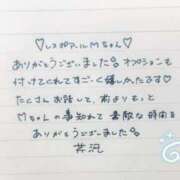 ♡レスポアールMちゃん♡
ありがとうございました♡オプションも
付けてくれてすごく嬉しかったです♡
たくさんお話して、前よりもっと
Mちゃんの事知れて素敵な時間を
ありがとうございました♡
芹沢